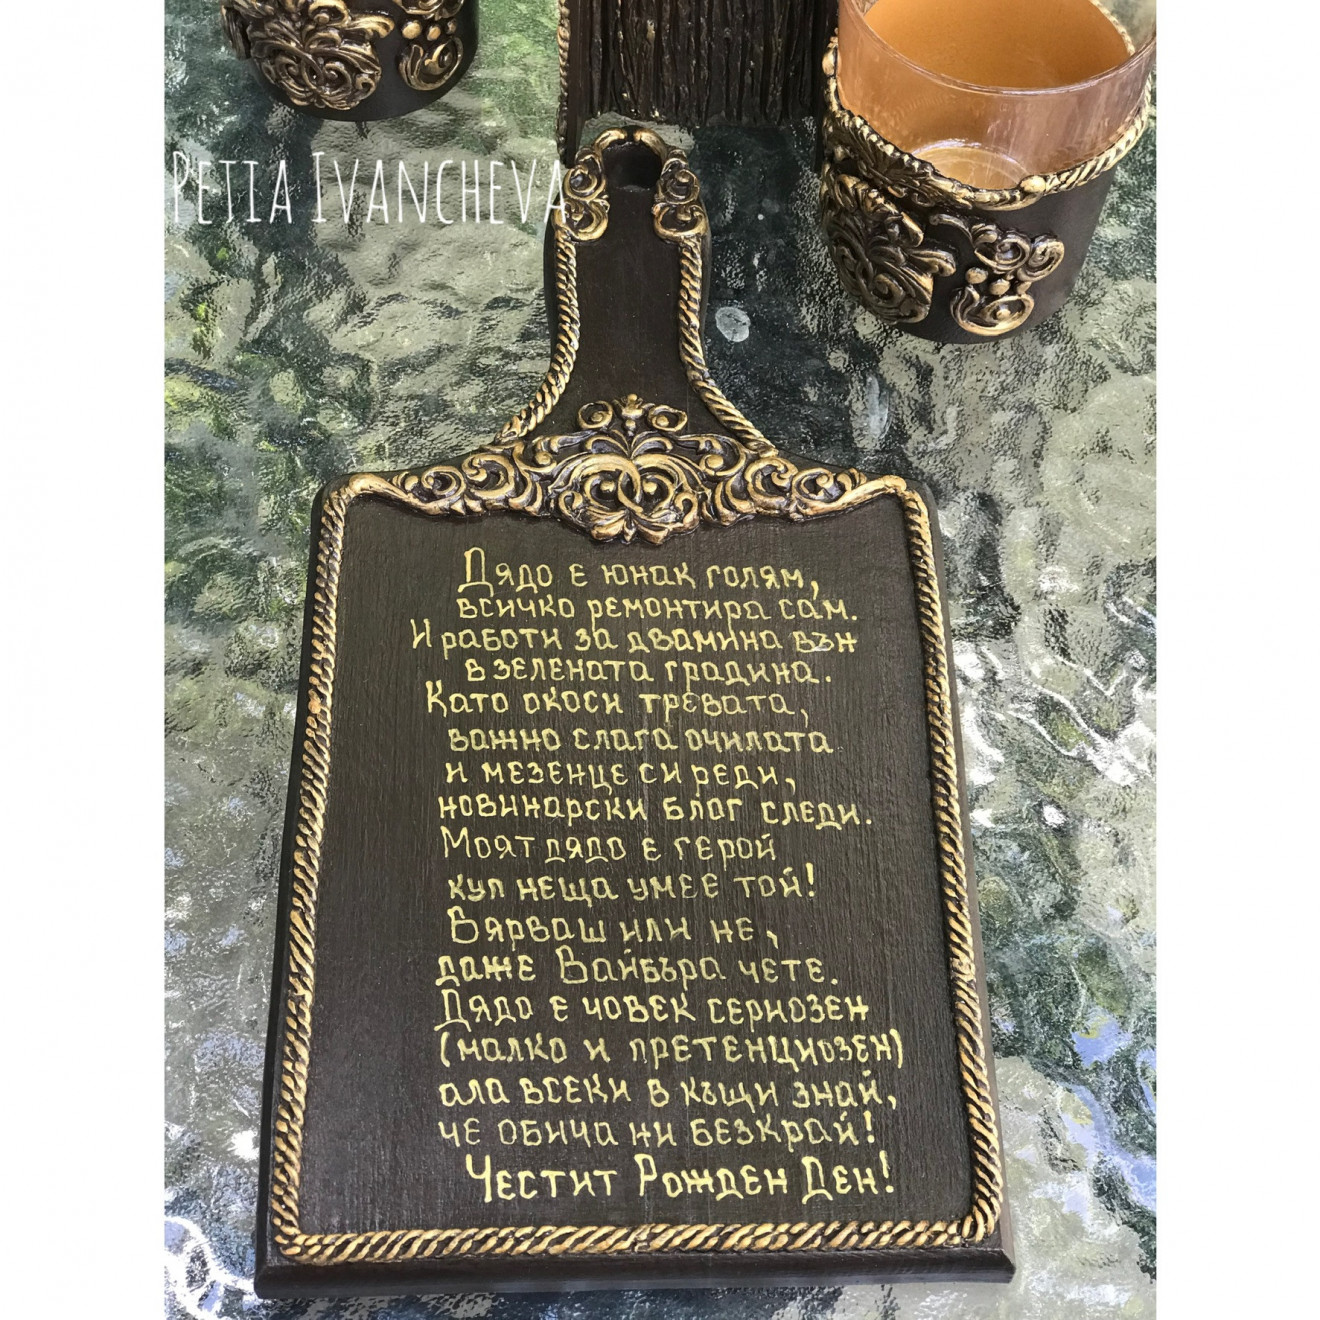 Petia Ivancheva
Дядо е юнак голям,
всичко ремонтира сам.
И работи за двамина вън
в зелената градина.
Като окоси тревата,
важно слага очилата
и мезенце си реди,
новинарски блог следи.
Моят дядо е герой
куп неща умее той!
Вярваш или не,
даже Вайбъра чете.
Дядо е човек сериозен
(малко и претенциозен)
ала всеки в къщи знай,
че обича ни безкрай!
Честит Рожден Ден!